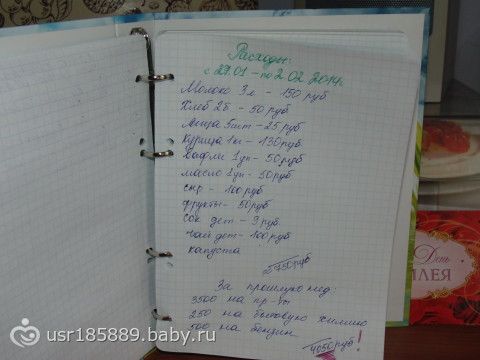 Расходы:
с 27.01 - по 2 02 2014г
Молоко 3л - 150 руб
Хлеб 2б - 50 руб
Яйца 5шт - 25 руб
Курица 1кг - 130 руб
Вафли 1уп - 50 руб
масло 1уп - 50 руб
сыр - 100 руб
фрукты - 50 руб
Сок дет - 3 руб
чай дет - 100 руб
капуста
750 руб
За прошлую нед.
3500 на пр-ты
250 на бытовую химию
500 на бензин
4050 руб!
День
ЛЕЯ
usr185889.baby.ru